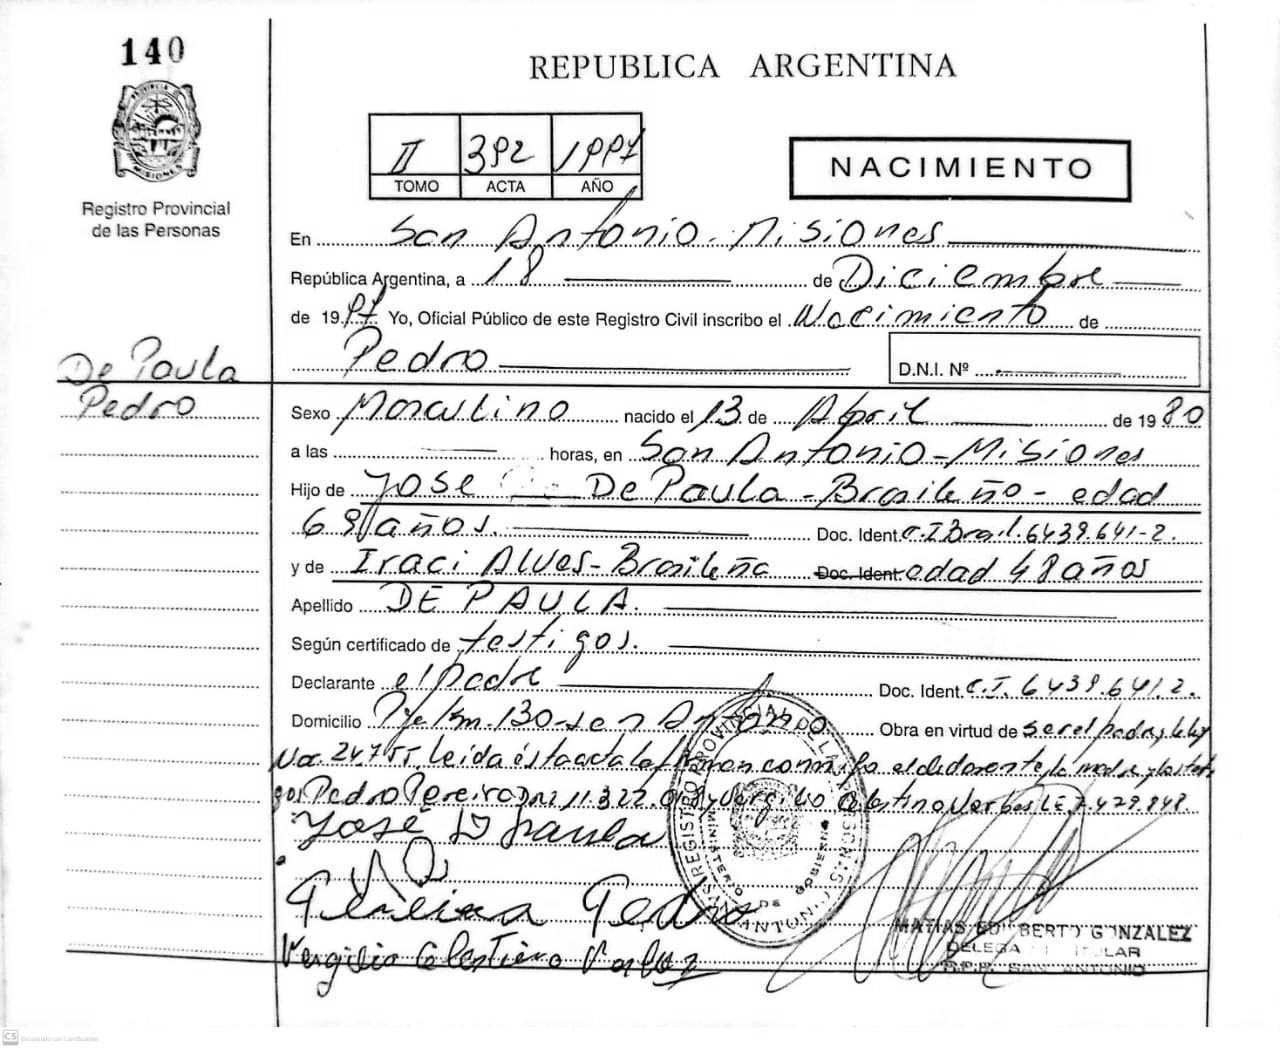 140
REPUBLICA ARGENTINA
II 392 1997
TOMO ACTA AÑO
NACIMIENTO
Registro Provincial
de las Personas
En San Antonio - Misiones
República Argentina, a 18 de Diciembre
de 1997 Yo, Oficial Público de este Registro Civil inscribo el Nacimiento de
Pedro D.N.I. Nº
De Paula
Pedro
Sexo Masculino nacido el 13 de Abril de 1980
a las horas, en San Antonio - Misiones
Hijo de José De Paula - Brasileño - edad
68 años. Doc. Ident. C.I Brasil. 6439.641-2.
y de Iraci Alves - Brasileña Doc. Ident. edad 48 años
Apellido DE PAULA.
Según certificado de testigos.
Declarante el padre Doc. Ident. C.I. 6439.641 2.
Domicilio Pje Km. 130 - San Antonio Obra en virtud de ser el padre, y ley
Nac. 24.755. Leída ésta acta la firman conmigo el declarante, la madre y los testi
gos Pedro Pereira DNI 11.322. y Vergilio Celestino LE 7.429.848
José D Paula
Pereira Pedro
Vergilio Celestino
REGISTRO PROVINCIAL DE LAS PERSONAS
MINISTERIO DE GOBIERNO
SAN ANTONIO
MATIAS EDILBERTO GONZALEZ
DELEGADO TITULAR
R.P.P. SAN ANTONIO
CS Escaneado con CamScanner